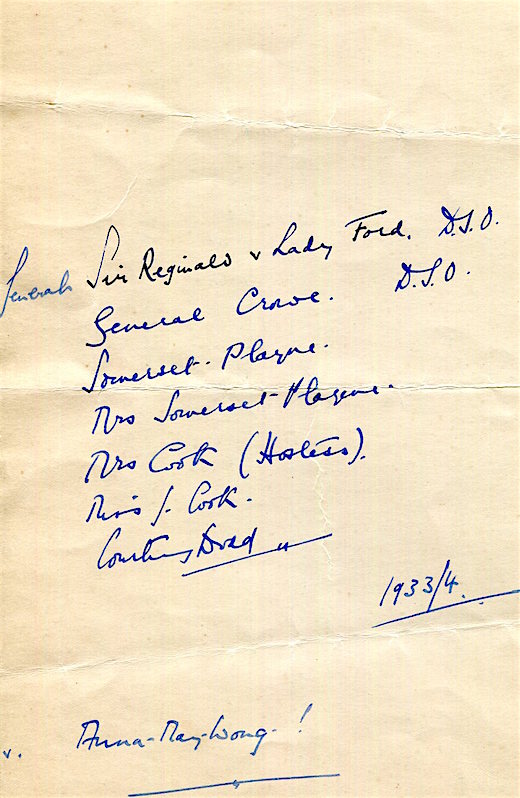 General Sir Reginald & Lady Ford. D.S.O.
General Crowe. D.S.O.
Somerset-Playne.
Mrs Somerset-Playne.
Mrs Cook (Hostess).
Miss J. Cook.
Courtney Dodd
1933/4.
&. Anna-May-Wong-!